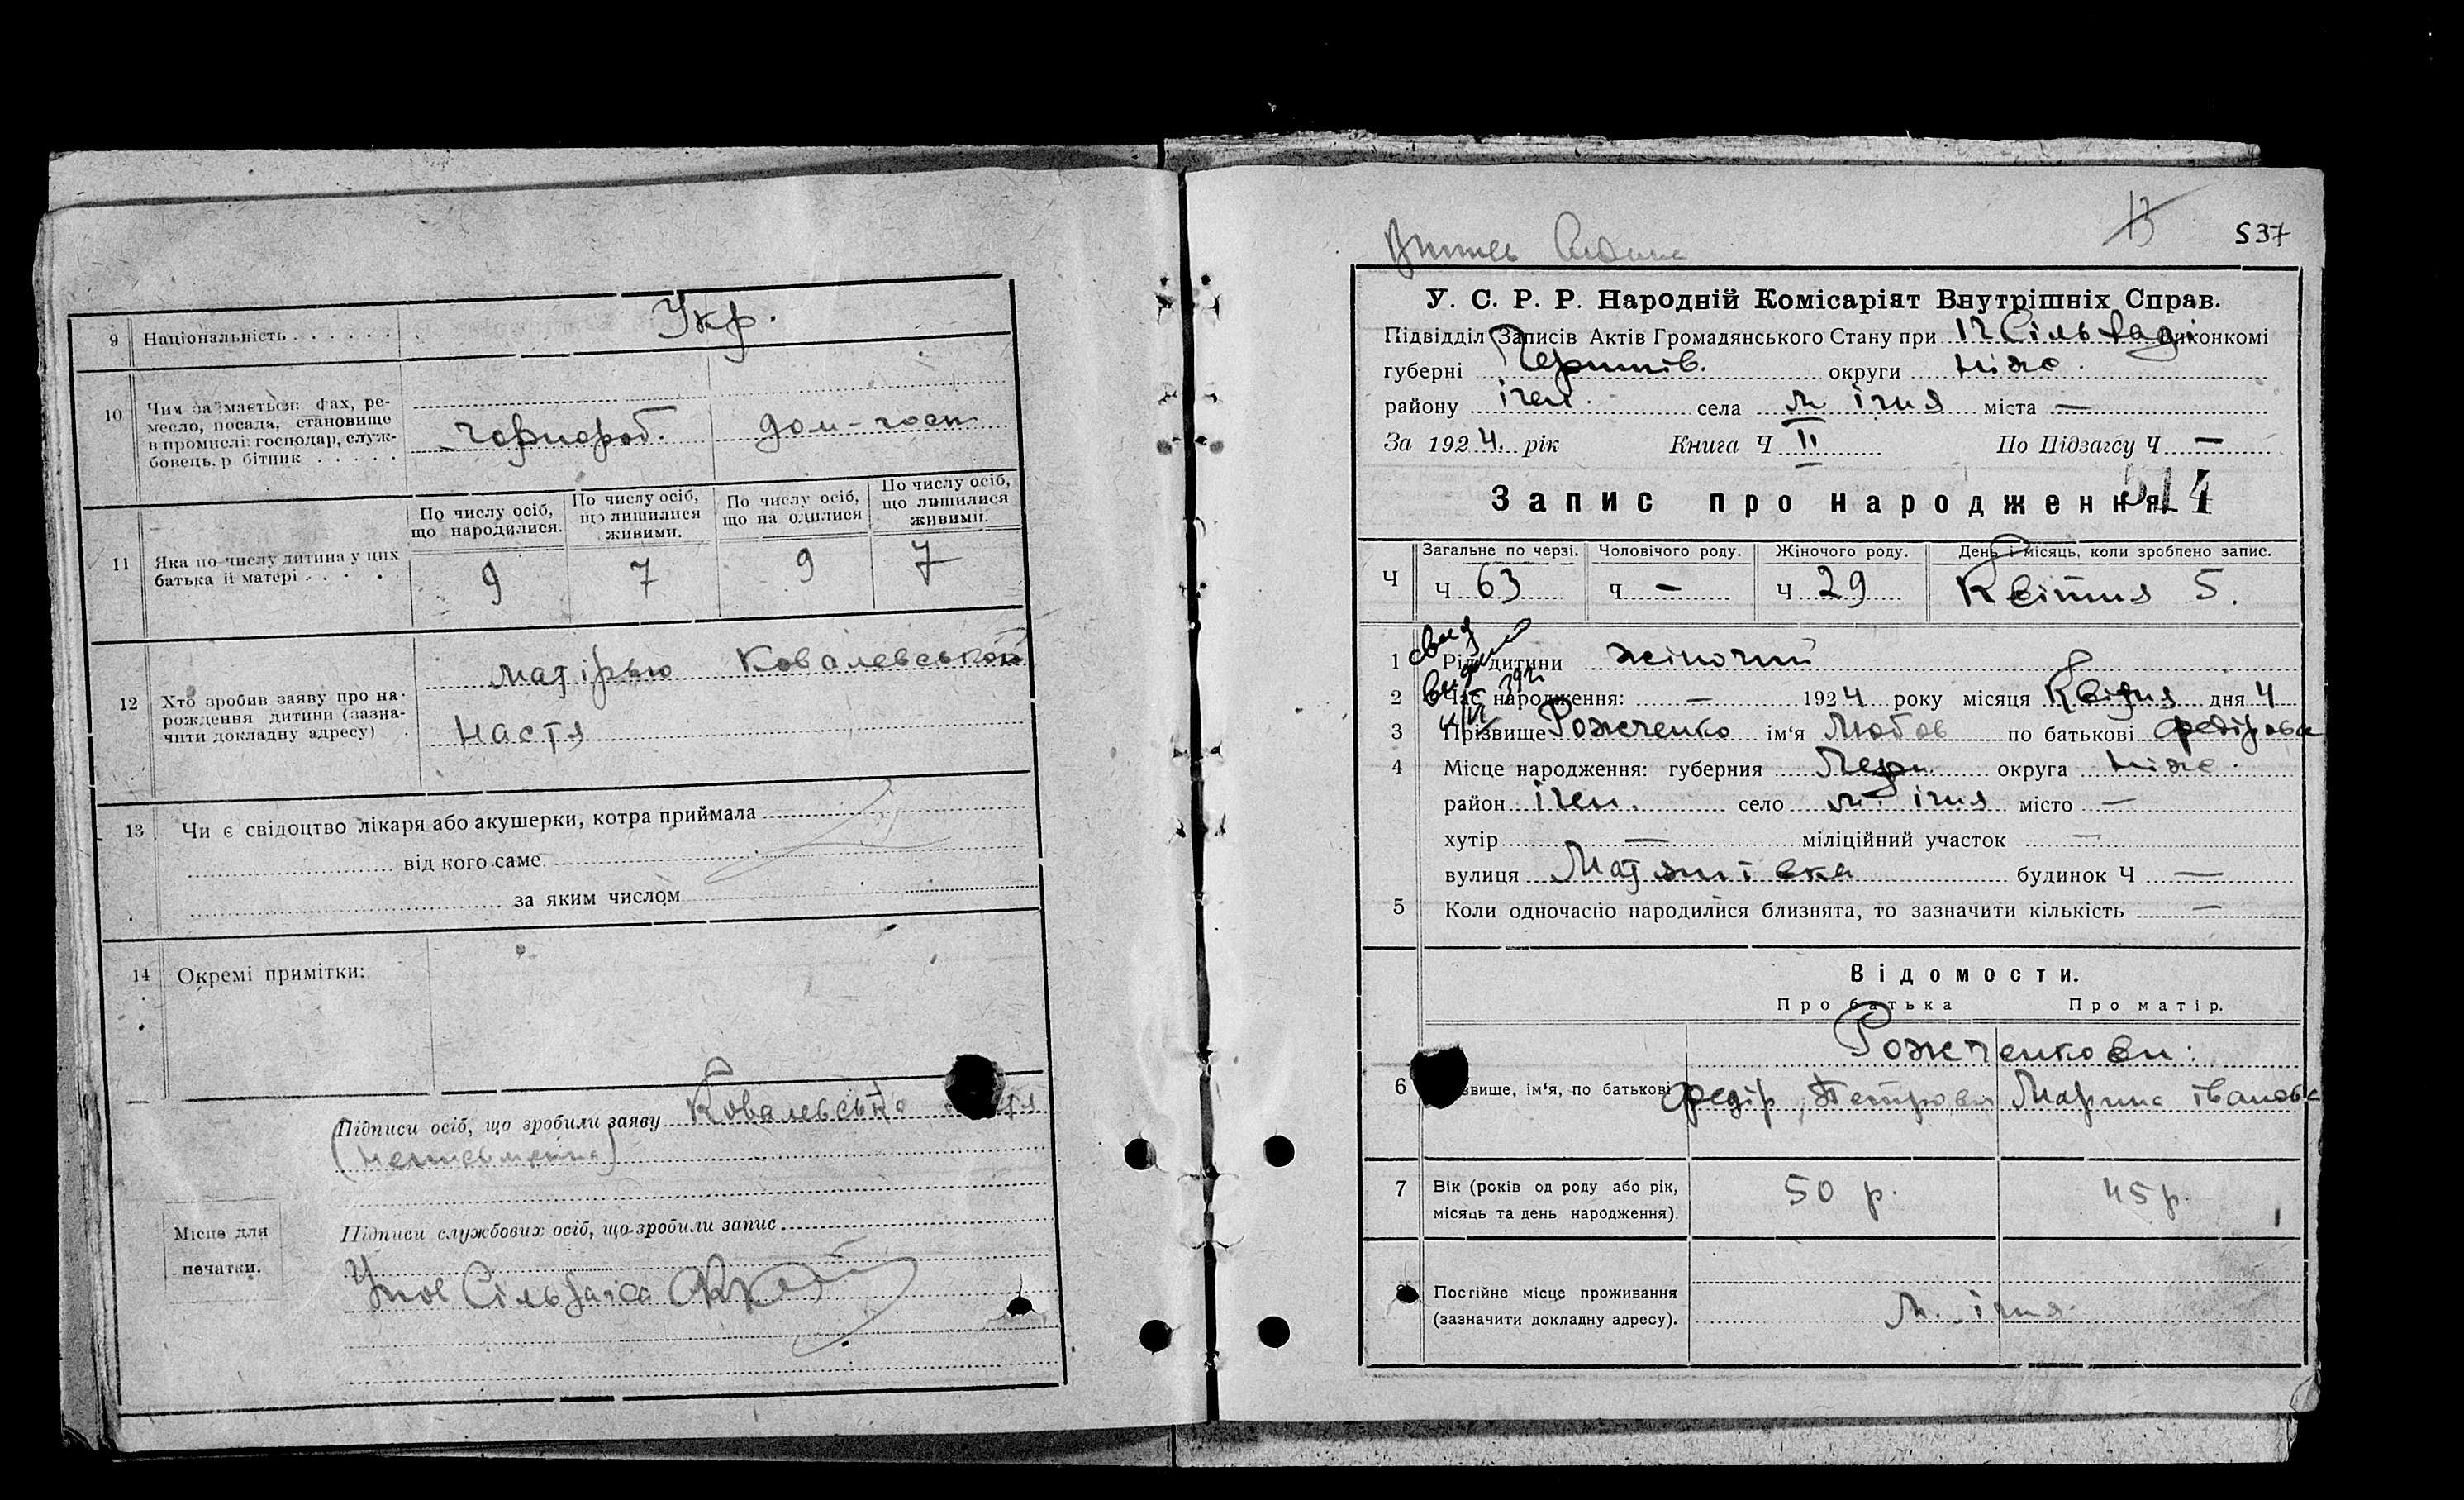 9 Національність . . . . . . Укр.
10 Чим займається: фах, ре-
месло, посада, становище
в промислі: господар, служ-
бовець, р бітник . . . . .
Чорнороб. дом-госп
11 Яка по числу дитина у цих
батька й матері . . . .
По числу осіб,
що народилися.
По числу осіб,
що лишилися
живими.
По числу осіб,
що на одилися
По числу осіб,
що лишилися
живими.
9 7 9 7
12 Хто зробив заяву про на-
рождення дитини (зазна-
чити докладну адресу)
матірью Ковалевською
Настя
13 Чи є свідоцтво лікаря або акушерки, котра приймала
від кого саме
за яким числом
14 Окремі примітки:
Підписи осіб, що зробили заяву Ковалевська
(неписьменна)
Підписи службових осіб, що зробили запис
Місце для
печатки.
Сільзагса
13 537
У. С. Р. Р. Народній Комісаріят Внутрішніх Справ.
Підвідділ Записів Актів Громадянського Стану при Сільраді виконкомі
губерні Чернигів. округи Ніже.
району ічен. села м ічня міста —
За 1924. рік Книга Ч II По Підзагсу Ч —
Запис про народження. 514
Ч Загальне по черзі. Чоловічого роду. Жіночого роду. День і місяць, коли зроблено запис.
Ч 63 Ч — Ч 29 Квітня 5.
1 Рід дитини жіночий
2 Час народження: — 1924 року місяця Квітня дня 4
3 Прізвище Рожченко ім'я Любов по батькові Федірова
4 Місце народження: губерния Черн. округа Ніже.
район ічен. село м. ічня місто —
хутір — міліційний участок —
вулиця Матяшівка будинок Ч —
5 Коли одночасно народилися близнята, то зазначити кількість —
Відомости.
Про батька Про матір.
Рожченкови:
6 звище, ім'я, по батькові Федір Петрович Марина івановна
7 Вік (років од роду або рік,
місяць та день народження). 50 р. 45 р.
8 Постійне місце проживання
(зазначити докладну адресу). м. ічня.